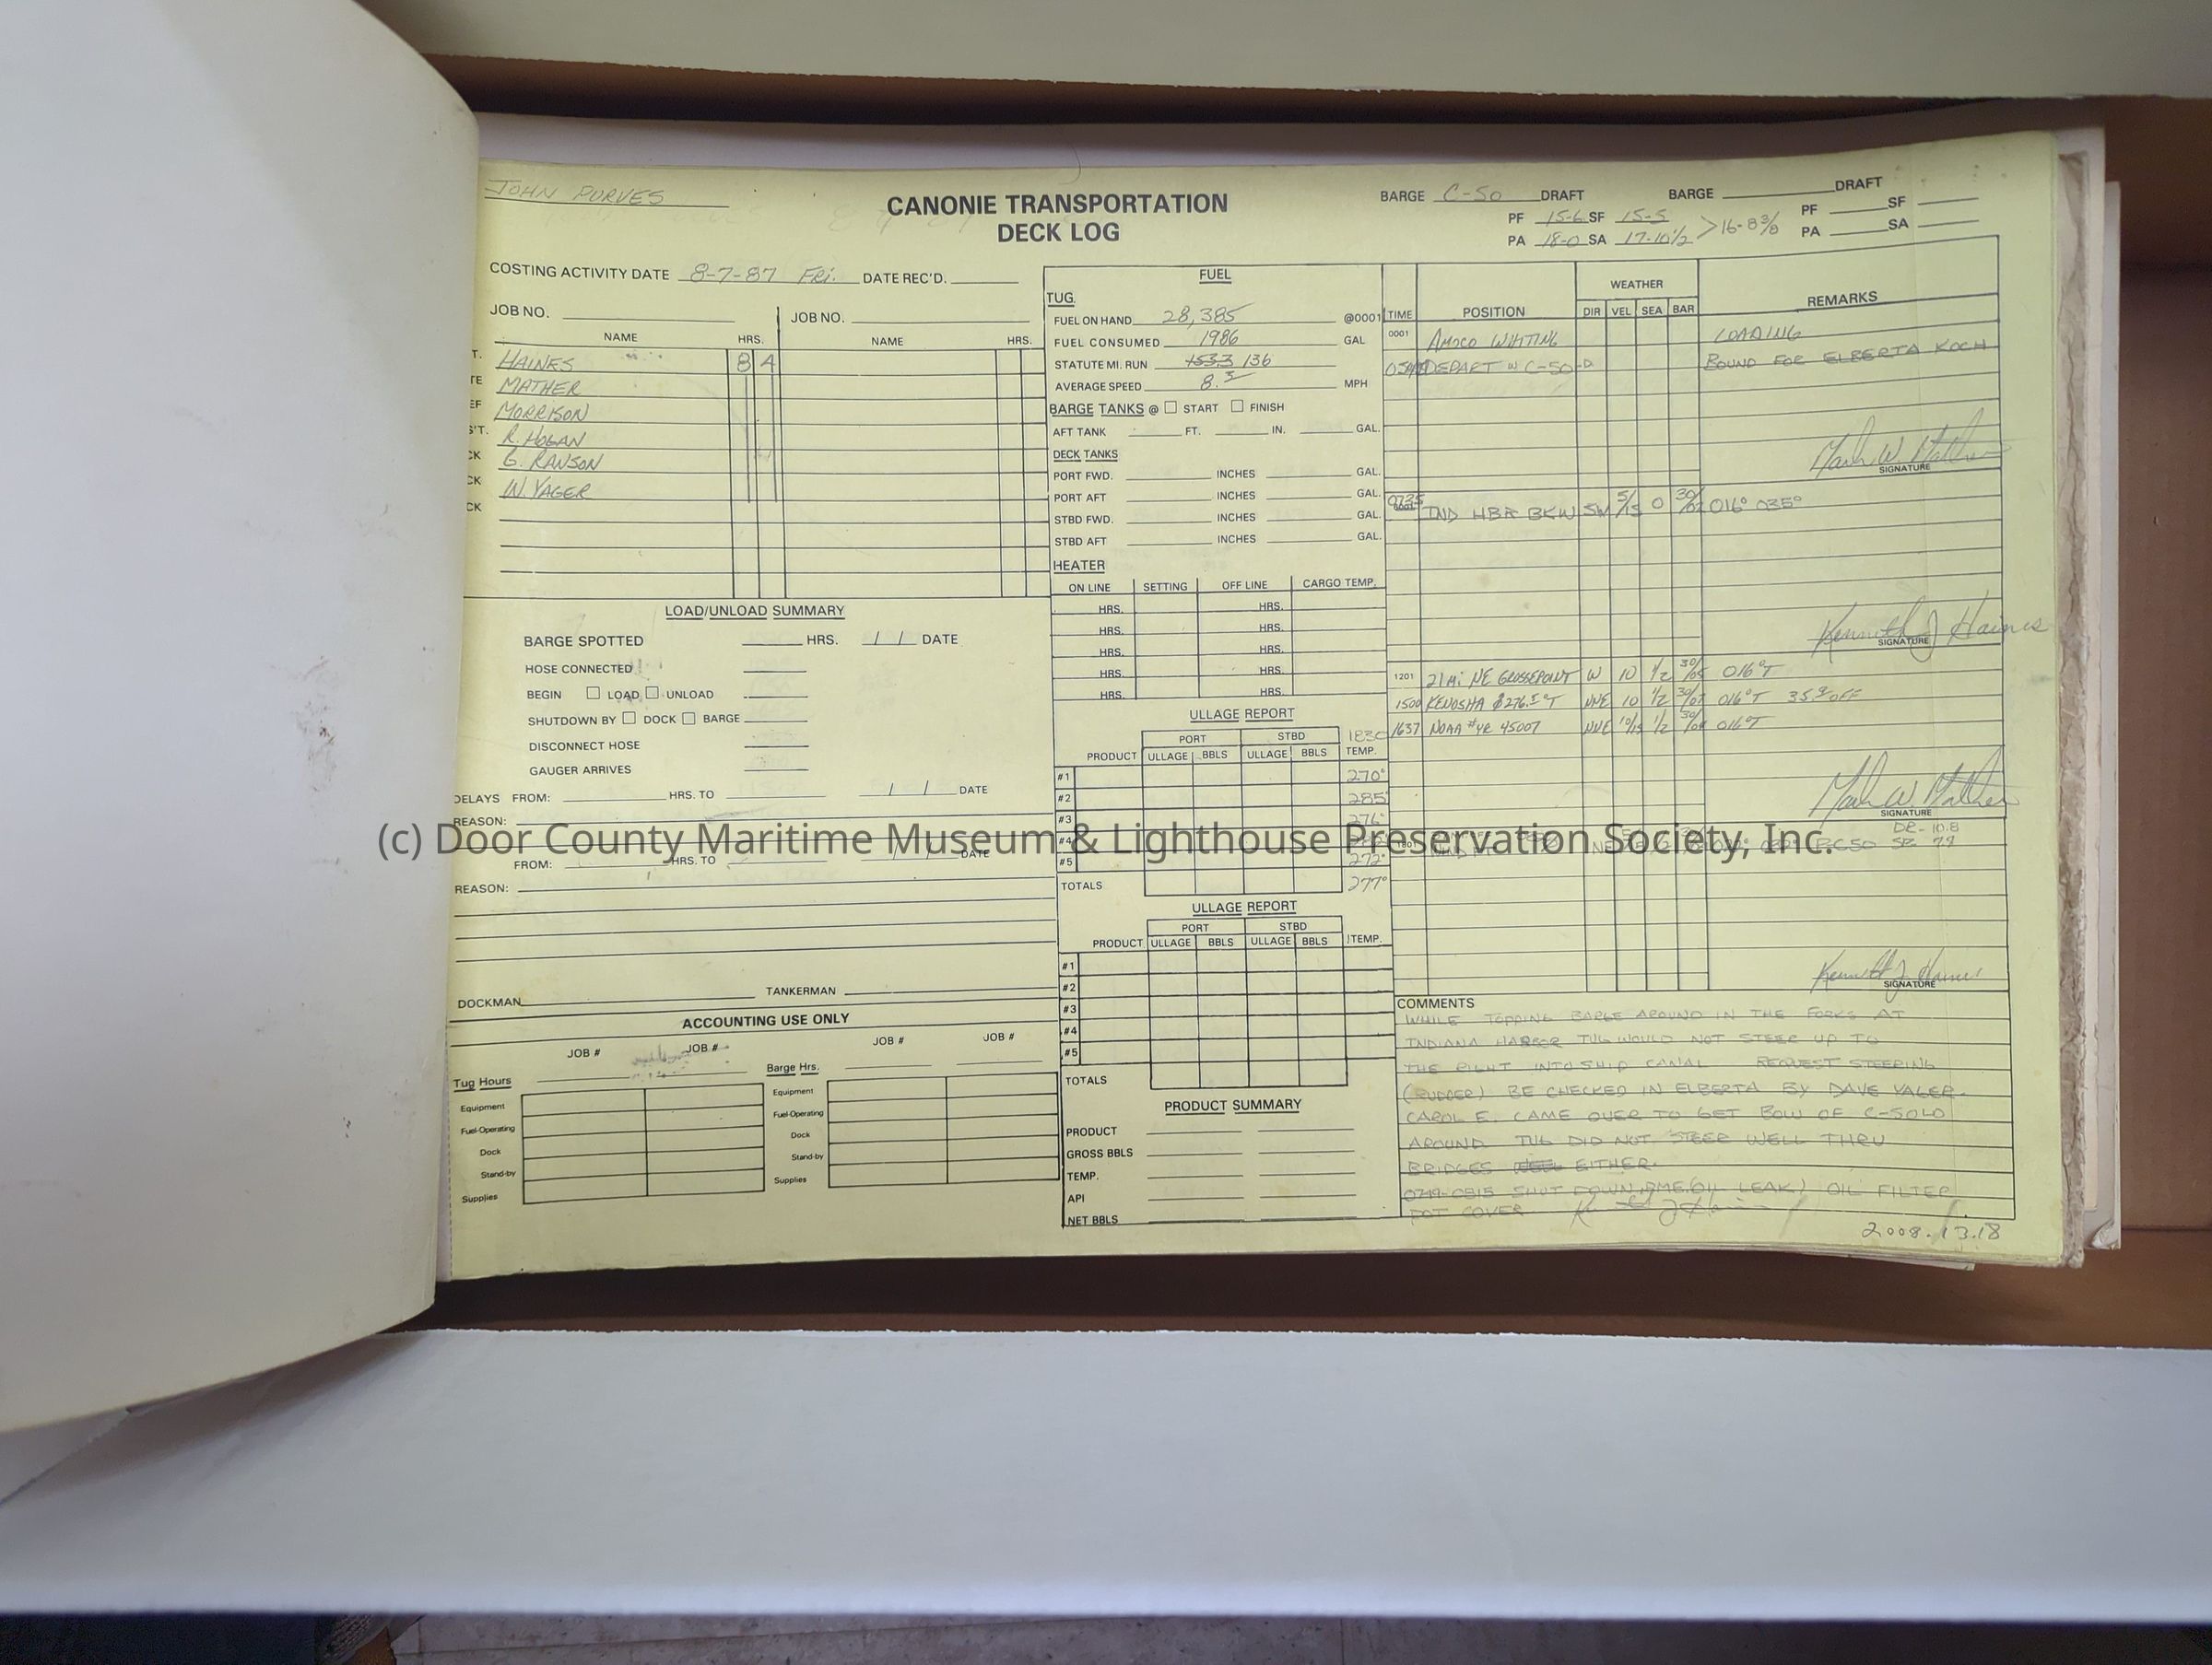 JOHN PURVES
CANONIE TRANSPORTATION
DECK LOG
BARGE C-50 DRAFT
PF 15-6 SF 15-5
PA 18-0 SA 17-10 1/2 >16-8 3/8
BARGE DRAFT
PF SF
PA SA
COSTING ACTIVITY DATE 8-7-87 FRI. DATE REC'D.
JOB NO. JOB NO.
NAME HRS. NAME HRS.
T. HAINES 8 4
TE MATHER
EF MORRISON
S'T. R. HOGAN
CK G. RANSON
CK W. YAGER
CK
LOAD/UNLOAD SUMMARY
BARGE SPOTTED HRS. / / DATE
HOSE CONNECTED
BEGIN LOAD UNLOAD
SHUTDOWN BY DOCK BARGE
DISCONNECT HOSE
GAUGER ARRIVES
DELAYS FROM: HRS. TO / / DATE
REASON:
FROM: HRS. TO / / DATE
REASON:
DOCKMAN TANKERMAN
ACCOUNTING USE ONLY
JOB # JOB # JOB # JOB #
Tug Hours Barge Hrs.
Equipment Equipment
Fuel-Operating Fuel-Operating
Dock Dock
Stand-by Stand-by
Supplies Supplies
FUEL
TUG
FUEL ON HAND 28,385 @0001
FUEL CONSUMED 1986 GAL
STATUTE MI. RUN 1533 136
AVERAGE SPEED 8.5 MPH
BARGE TANKS @ START FINISH
AFT TANK FT. IN. GAL.
DECK TANKS
PORT FWD. INCHES GAL.
PORT AFT INCHES GAL.
STBD FWD. INCHES GAL.
STBD AFT INCHES GAL.
HEATER
ON LINE SETTING OFF LINE CARGO TEMP.
HRS. HRS.
HRS. HRS.
HRS. HRS.
HRS. HRS.
HRS. HRS.
ULLAGE REPORT
PORT STBD 1830
PRODUCT ULLAGE BBLS ULLAGE BBLS TEMP.
#1 270°
#2 285°
#3 276°
#4
#5 272°
TOTALS 277°
ULLAGE REPORT
PORT STBD
PRODUCT ULLAGE BBLS ULLAGE BBLS TEMP.
#1
#2
#3
#4
#5
TOTALS
PRODUCT SUMMARY
PRODUCT
GROSS BBLS
TEMP.
API
NET BBLS
WEATHER
TIME POSITION DIR VEL SEA BAR REMARKS
0001 AMOCO WHITING LOADING
DEPART W C-50-D BOUND FOR ELBERTA KOCH
Mark W. Mather
SIGNATURE
0735 IND HBR BKW SW 5/15 0 30/02 016° 035°
Kenneth J Haines
SIGNATURE
1201 21 Mi NE GROSSEPOINT W 10 1/2 30/05 016°T
1500 KENOSHA $ 276.5°T NNE 10 1/2 30/07 016°T 35.9 OFF
1637 NOAA #4R 45007 NNE 10/15 1/2 016°T
Mark W. Mather
SIGNATURE
DR- 10.8
Kenneth J. Haines
SIGNATURE
COMMENTS
WHILE TOPPING BARGE AROUND IN THE FORKS AT
INDIANA HARBOR TUG WOULD NOT STEER UP TO
THE RIGHT INTO SHIP CANAL REQUEST STEERING
(RUDDER) BE CHECKED IN ELBERTA BY DAVE YAGER.
CAROL E. CAME OVER TO GET BOW OF C-50 LO
AROUND TUG DID NOT STEER WELL THRU
BRIDGES EITHER.
0749-0815 SHUT DOWN PME (OIL LEAK) OIL FILTER
POT COVER
2008.13.18
(c) Door County Maritime Museum & Lighthouse Preservation Society, Inc.